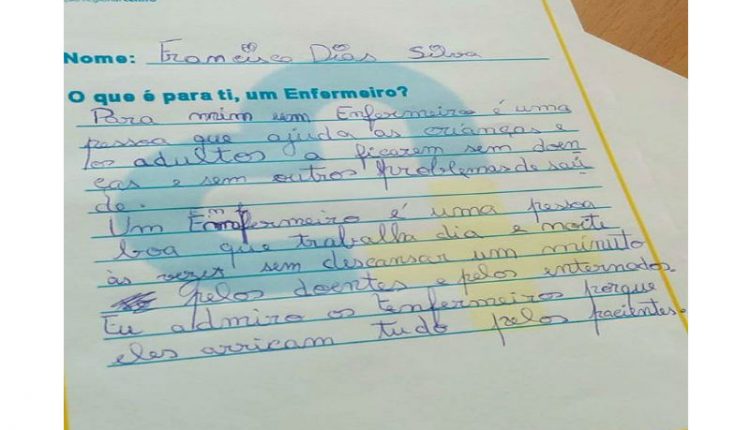 Nome: Francisca Dias Silva
O que é para ti, um Enfermeiro?
Para mim um Enfermeiro é uma
pessoa que ajuda as crianças e
os adultos a ficarem sem doen
ças e sem outros problemas de saú
de.
Um Enfermeiro é uma pessoa
boa que trabalha dia e noite
às vezes sem descansar um minuto
pelos doentes e pelos enternados
Eu admiro os Enfermeiros porque
eles arricam tudo pelos pacientes.